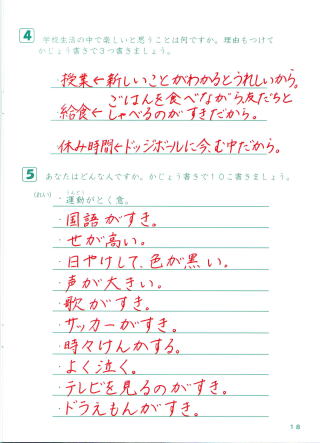 4 学校生活の中で楽しいと思うことは何ですか。理由もつけて
かじょう書きで３つ書きましょう。
・授業←新しいことがわかるとうれしいから。
・給食←ごはんを食べながら友だちと
しゃべるのがすきだから。
・休み時間←ドッジボールに今、む中だから。
5 あなたはどんな人ですか。かじょう書きで１０こ書きましょう。
(れい) ・運動がとく意。
うんどう
・国語がすき。
・せが高い。
・日やけして、色が黒い。
・声が大きい。
・歌がすき。
・サッカーがすき。
・時々けんかする。
・よく泣く。
・テレビを見るのがすき。
・ドラえもんがすき。
18